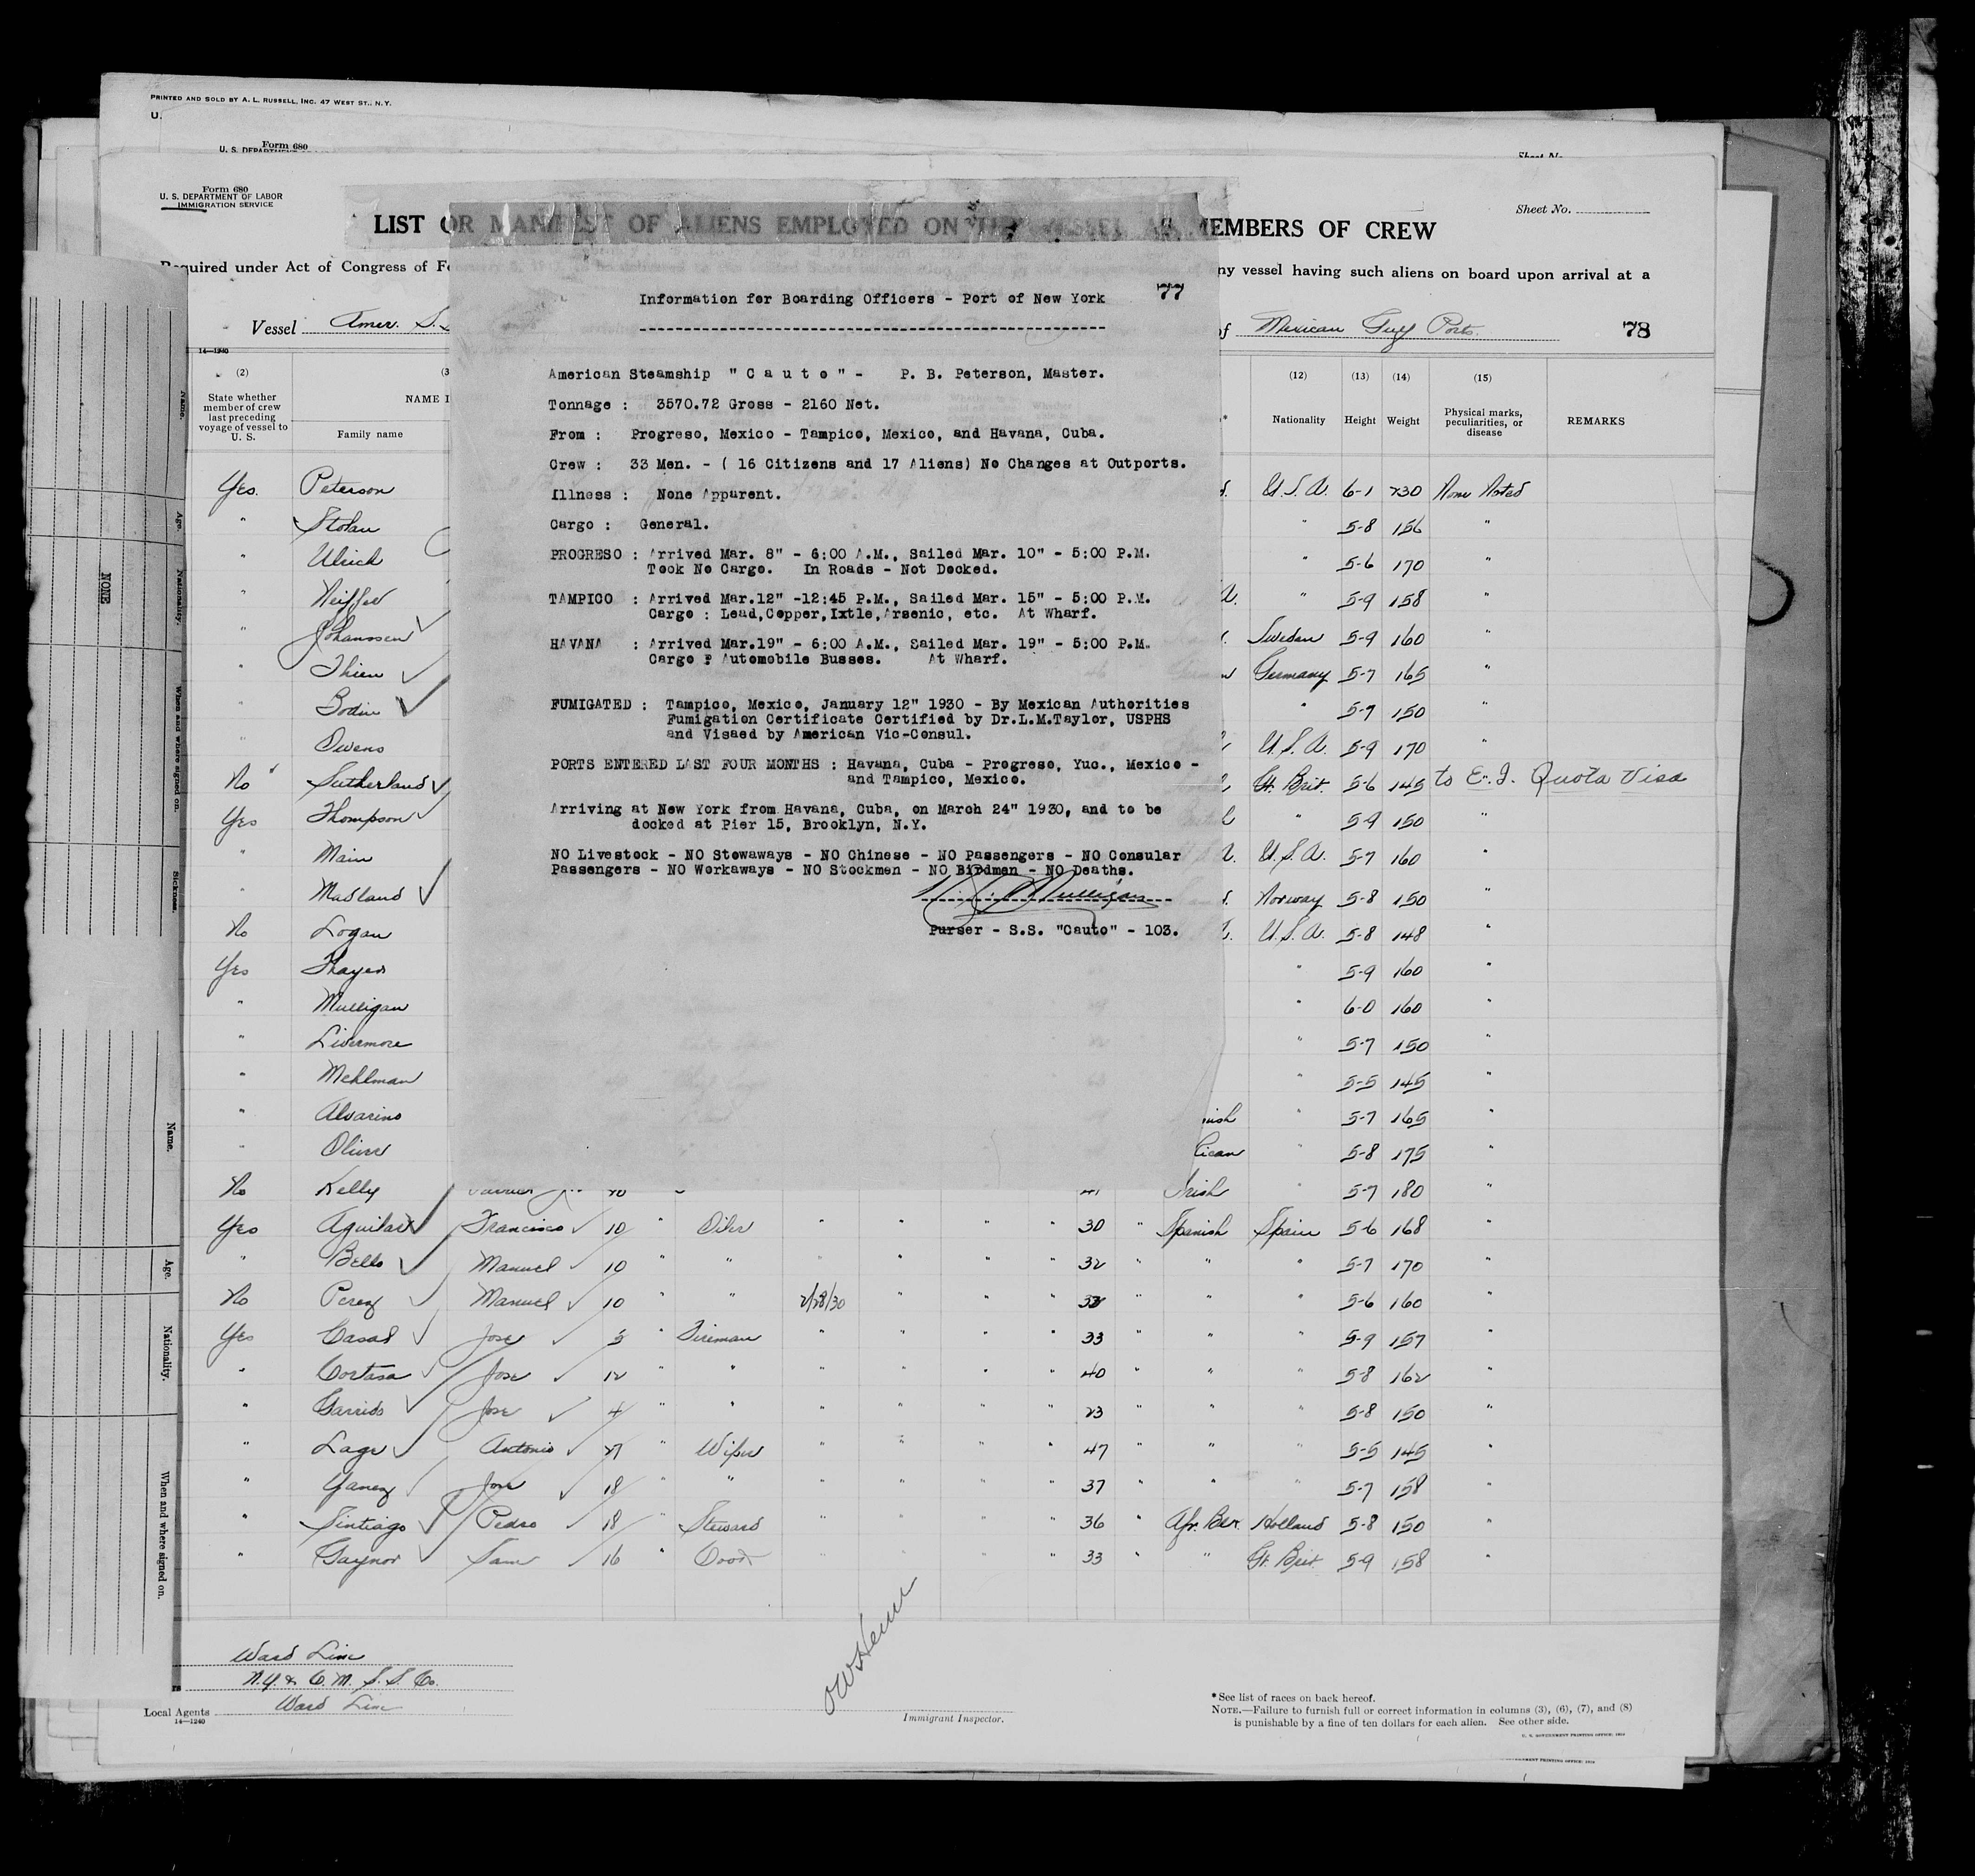 PRINTED AND SOLD BY A. L. RUSSELL, INC. 47 WEST ST., N.Y.
U.
Form 680
Sheet No.
Form 680
U. S. DEPARTMENT OF LABOR
IMMIGRATION SERVICE
Sheet No.
LIST OR MANIFEST OF ALIENS EMPLOYED ON THE VESSEL AS MEMBERS OF CREW
Required under Act of Congress of
ny vessel having such aliens on board upon arrival at a
Vessel Amer. S.
of Mexican Gulf Ports. 78
14—1240
Information for Boarding Officers - Port of New York 77
American Steamship "C a u t o" - P. B. Peterson, Master.
Tonnage : 3570.72 Gross - 2160 Net.
From : Progreso, Mexico - Tampico, Mexico, and Havana, Cuba.
Crew : 33 Men. - ( 16 Citizens and 17 Aliens) No Changes at Outports.
Illness : None Apparent.
Cargo : General.
PROGRESO : Arrived Mar. 8" - 6:00 A.M., Sailed Mar. 10" - 5:00 P.M.
Took No Cargo. In Roads - Not Docked.
TAMPICO : Arrived Mar.12" -12:45 P.M., Sailed Mar. 15" - 5:00 P.M.
Cargo : Lead,Copper,Ixtle,Arsenic, etc. At Wharf.
HAVANA : Arrived Mar.19" - 6:00 A.M., Sailed Mar. 19" - 5:00 P.M.
Cargo : Automobile Busses. At Wharf.
FUMIGATED : Tampico, Mexico, January 12" 1930 - By Mexican Authorities
Fumigation Certificate Certified by Dr.L.M.Taylor, USPHS
and Visaed by American Vic-Consul.
PORTS ENTERED LAST FOUR MONTHS : Havana, Cuba - Progreso, Yuc., Mexico -
and Tampico, Mexico.
Arriving at New York from Havana, Cuba, on March 24" 1930, and to be
docked at Pier 15, Brooklyn, N.Y.
NO Livestock - NO Stowaways - NO Chinese - NO Passengers - NO Consular
Passengers - NO Workaways - NO Stockmen - NO Birdmen - NO Deaths.
Mulligan
Purser - S.S. "Cauto" - 103.
(2) (3 (12) (13) (14) (15)
State whether member of crew last preceding voyage of vessel to U. S.
NAME I
Family name
Nationality Height Weight
Physical marks, peculiarities, or disease
REMARKS
Yes. Peterson U.S.A. 6-1 230 None Noted
" Stolan " 5-8 156 "
" Ulrich " 5-6 170 "
" Neiffer " 5-9 158 "
" Johanssen Sweden 5-9 160 "
" Thien Germany 5-7 165 "
" Bodin " 5-7 150 "
" Owens U.S.A. 5-9 170 "
No Sutherland Gt. Brit. 5-6 145 to E.I. Quota Visa
Yes Thompson " 5-9 150 "
" Main U.S.A. 5-7 160 "
" Madland Norway 5-8 150 "
No Logan U.S.A. 5-8 148 "
Yes Thayer " 5-9 160 "
" Mulligan " 6-0 160 "
" Livermore " 5-7 150 "
" Mehlman " 5-5 145 "
" Alvarino nish " 5-7 165 "
" Oliver ican " 5-8 175 "
No Kelly Irish " 5-7 180 "
Yes Aguilar Francisco 10 " Oiler " " " " 30 " Spanish Spain 5-6 168 "
" Bello Manuel 10 " " " " " " 32 " " " 5-7 170 "
No Perez Manuel 10 " " 2/28/30 " " " 33 " " " 5-6 160 "
Yes Casal Jose 3 " Fireman " " " " 33 " " " 5-9 157 "
" Cortasa Jose 12 " " " " " " 40 " " " 5-8 162 "
" Garrido Jose 4 " " " " " " 23 " " " 5-8 150 "
" Lage Antonio 27 " Wiper " " " " 47 " " " 5-5 145 "
" Yanez Jose 18 " " " " " " 37 " " " 5-7 158 "
" Sintiago Pedro 18 " Steward " " " " 36 " Afr. Blk. Holland 5-8 150 "
" Gaynor Sam 16 " Cook " " " " 33 " " Gt. Brit. 5-9 158 "
Name.
Age.
Nationality.
When and where signed on.
Sickness.
NONE
Name.
Age.
Nationality.
When and where signed on.
Ward Line
N.Y. & C. M. S. S. Co.
Local Agents Ward Line
14—1240
Immigrant Inspector.
* See list of races on back hereof.
NOTE.—Failure to furnish full or correct information in columns (3), (6), (7), and (8)
is punishable by a fine of ten dollars for each alien. See other side.